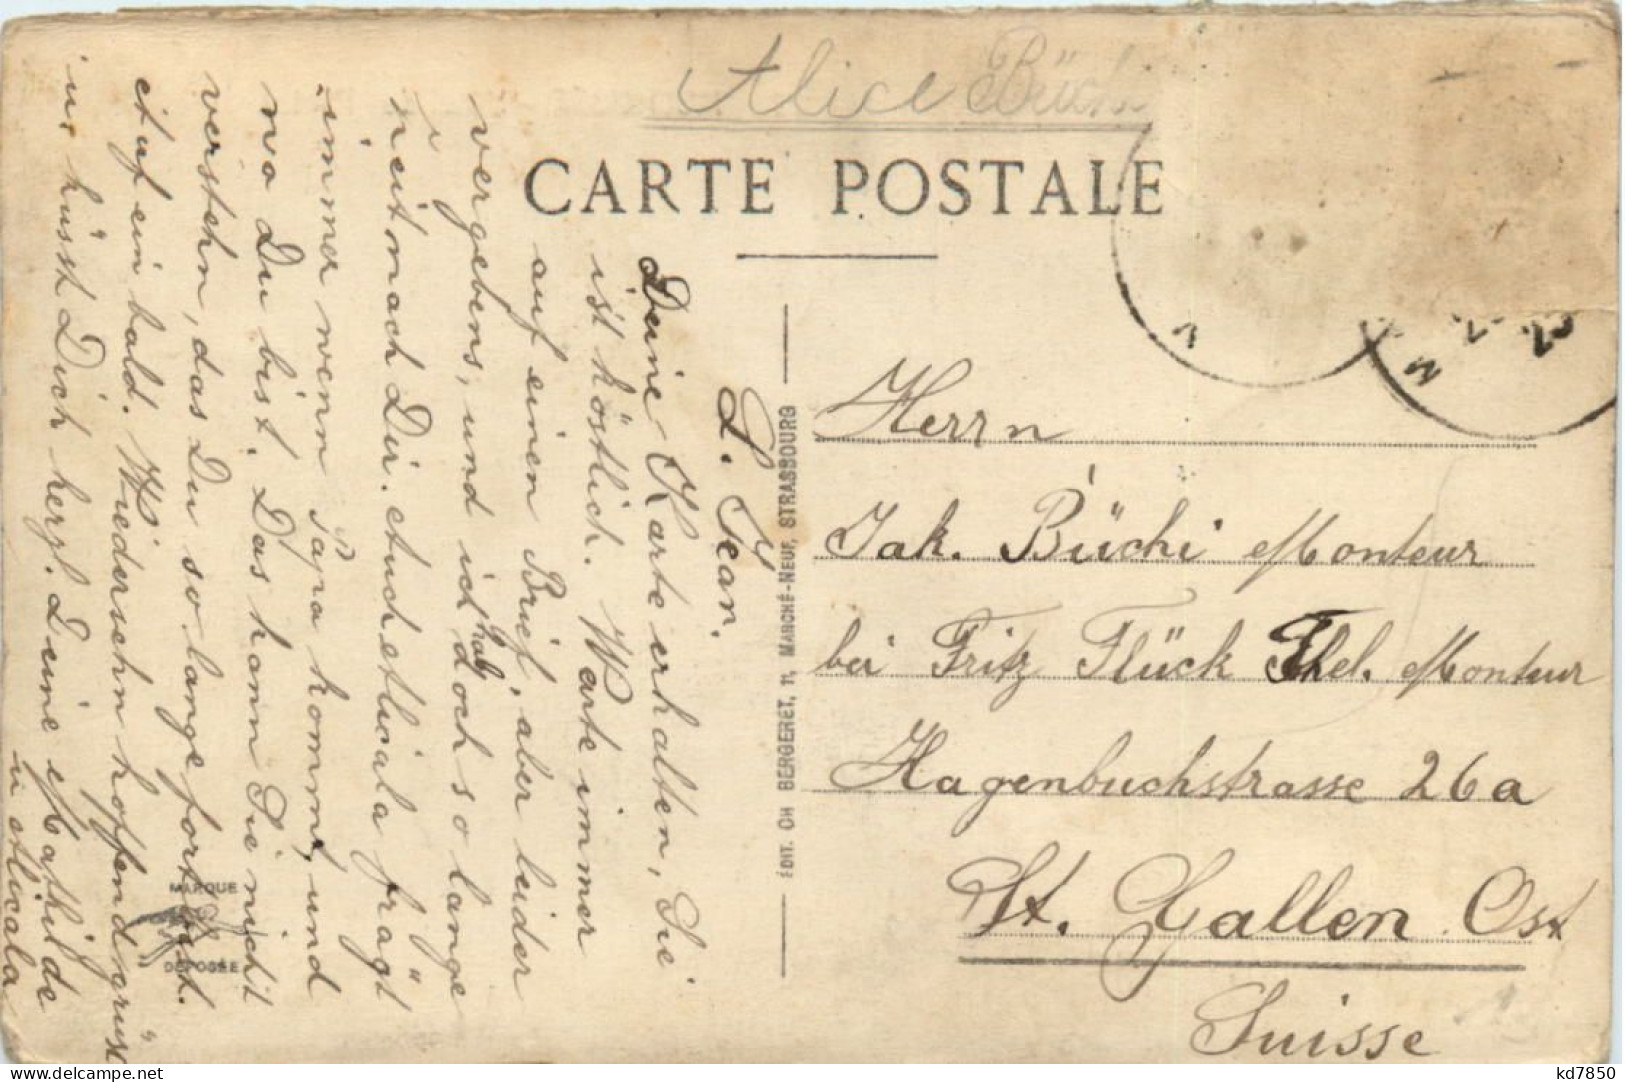 Alice Büchi
CARTE POSTALE
L. Jean.
Deine Karte erhalten, Sie
ist köstlich. Warte immer
auf einen Brief, aber leider
vergebens, und ich hab doch so lange
neit nach Dir. Auch Alicala frägt
immer wenn Papa kommt, und
wo Du bist. Das kann Sie nicht
verstehn, das Du so lange fort bist.
Auf ein bald. Wiedersehn hoffend grüsst
u. küsst Dich herzl. Deine Mathilde
u Alicala
ÉDIT. CH BERGERET, 11, MARCHÉ-NEUF, STRASBOURG
MARQUE
DÉPOSÉE
Herrn
Jak. Büchi Monteur
bei Fritz Flück Thel. Monteur
Hagenbuchstrasse 26a
St. Gallen Ost
Suisse
kd7850